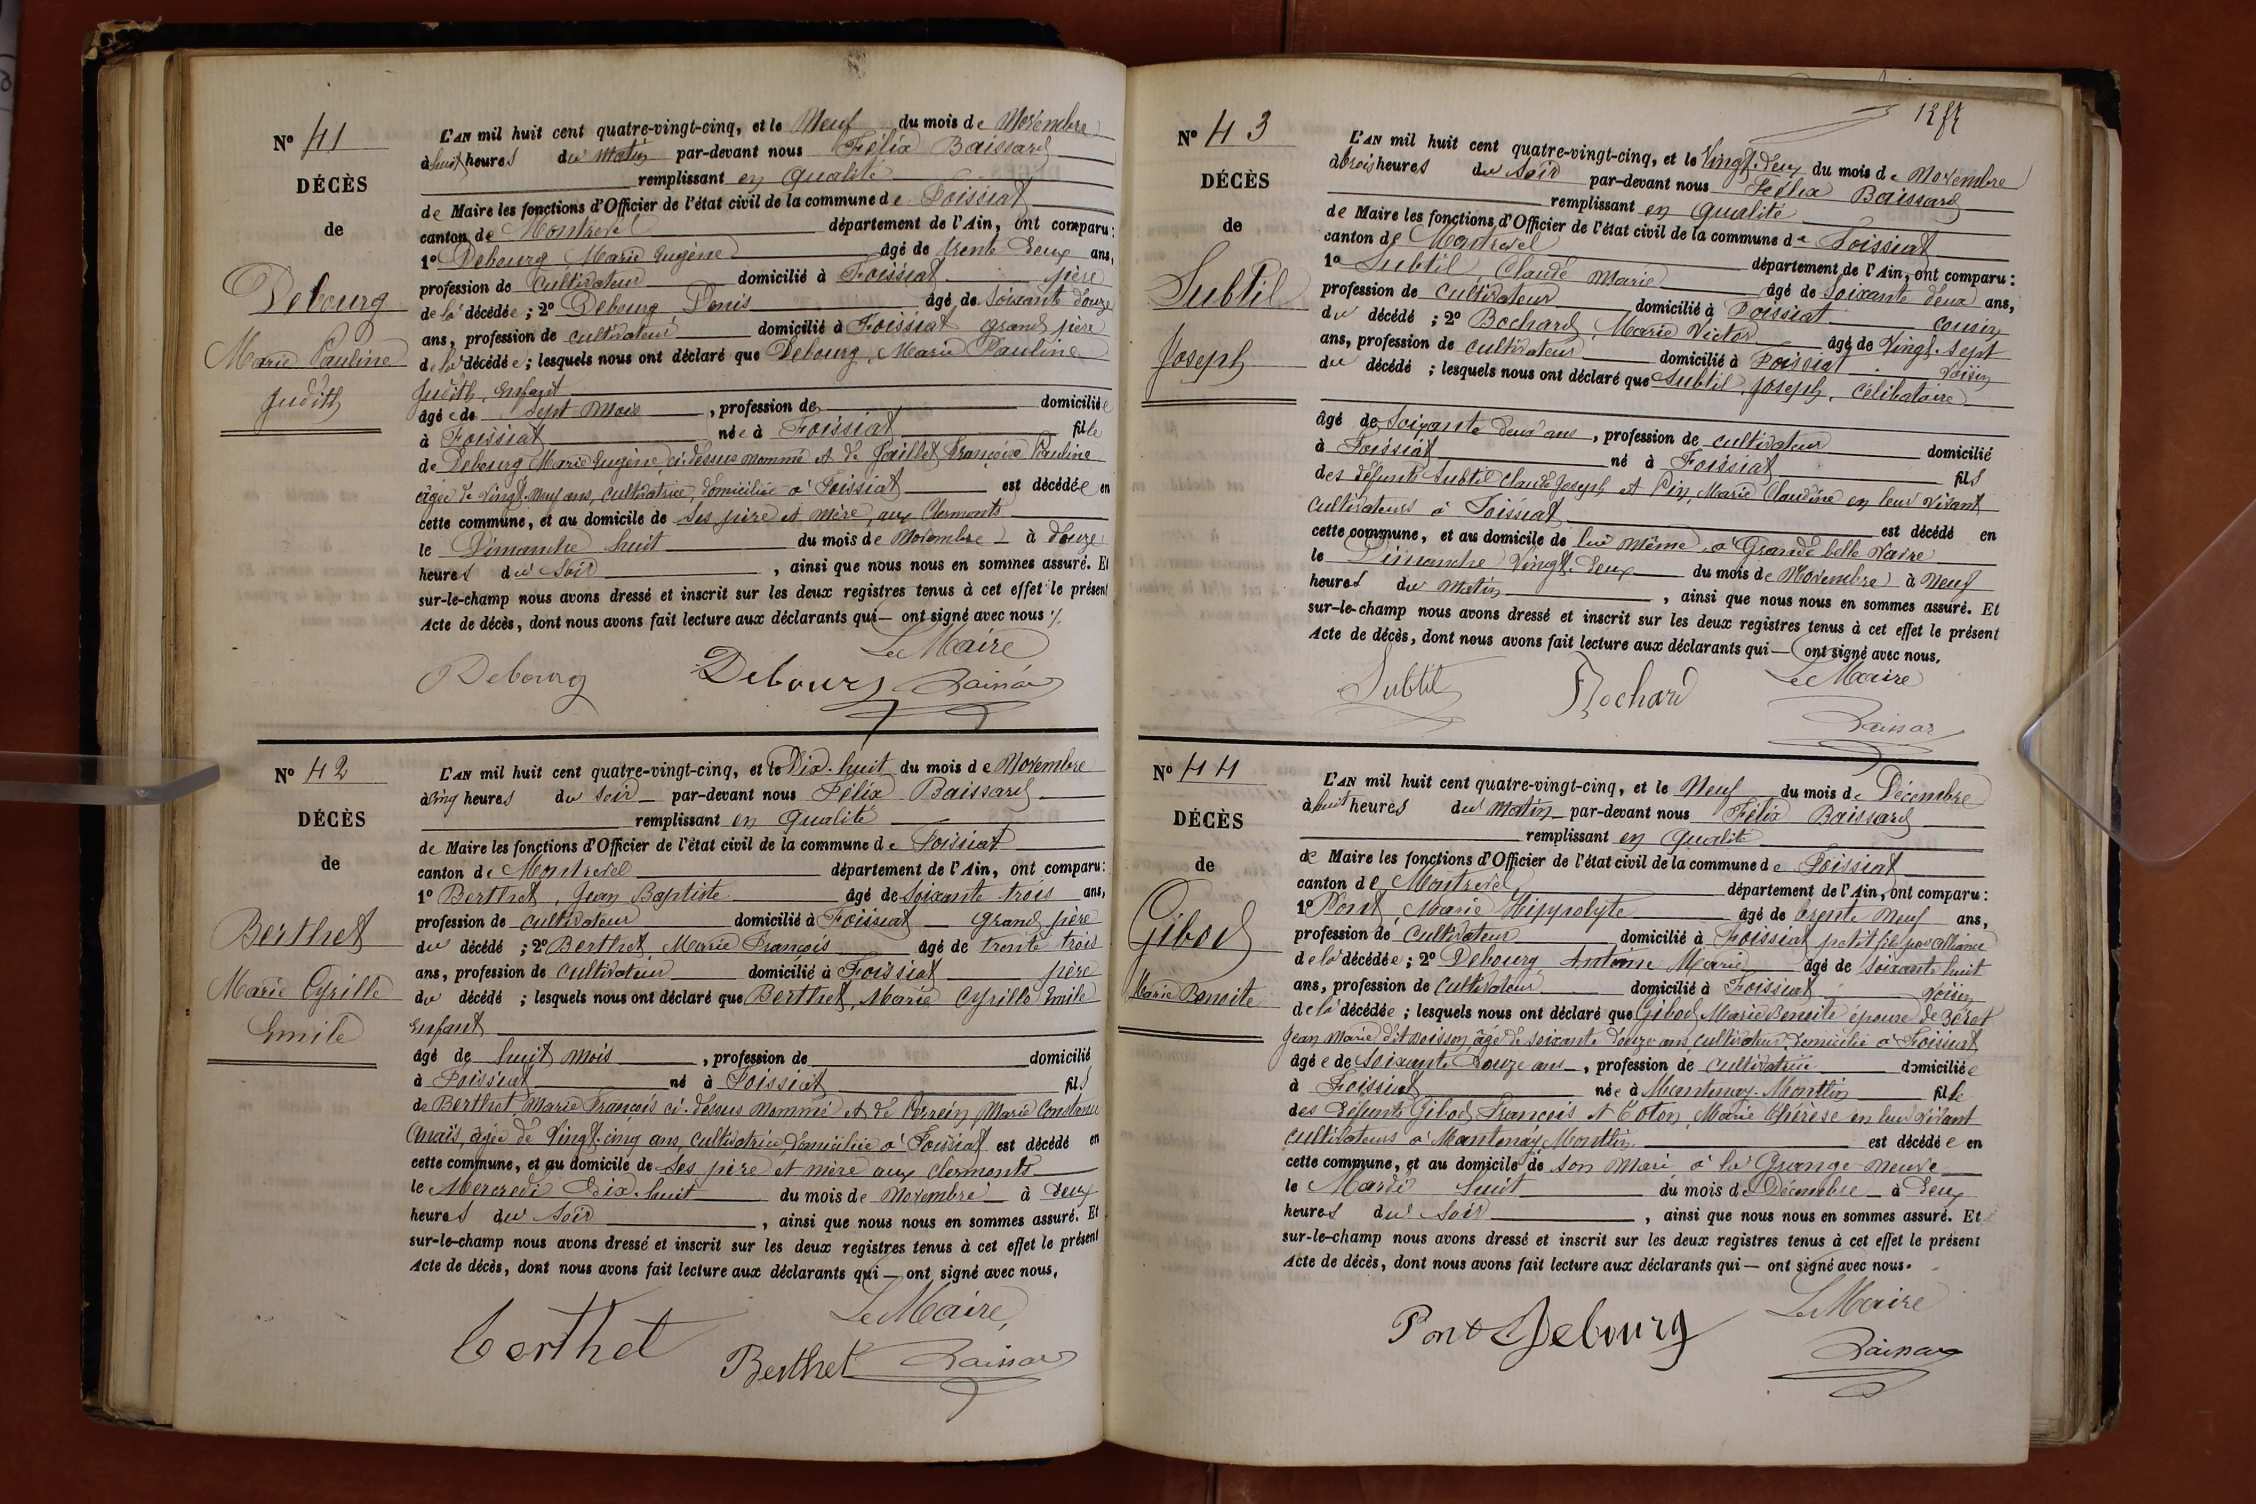 N° 41
DÉCÈS
de
Debourg
Marie Pauline
Judith
L'AN mil huit cent quatre-vingt-cinq, et le Neuf du mois de Novembre
à huit heures du matin par-devant nous Félix Baissard
remplissant en qualité
de Maire les fonctions d'Officier de l'état civil de la commune de Foissiat
canton de Montrevel département de l'Ain, ont comparu :
1° Debourg Marie Eugène âgé de trente deux ans,
profession de cultivateur domicilié à Foissiat père
de la décédée ; 2° Debourg Denis âgé de soixante douze
ans, profession de cultivateur domicilié à Foissiat grand père
de la décédée ; lesquels nous ont déclaré que Debourg, Marie Pauline
Judith, enfant
âgée de sept mois , profession de domiciliée
à Foissiat née à Foissiat fille
de Debourg Marie Eugène ci-dessus nommé et de Jaillet Françoise Pauline
âgée de vingt-neuf ans, cultivatrice, domiciliée à Foissiat est décédée en
cette commune, et au domicile de ses père et mère, aux Clermonts
le Dimanche huit du mois de Novembre à douze
heures du soir , ainsi que nous nous en sommes assuré. Et
sur-le-champ nous avons dressé et inscrit sur les deux registres tenus à cet effet le présent
Acte de décès, dont nous avons fait lecture aux déclarants qui — ont signé avec nous
Le Maire
Debourg Debourg Baissard
N° 42
DÉCÈS
de
Berthet
Marie Cyrille
Emile
L'AN mil huit cent quatre-vingt-cinq, et le Dix-huit du mois de Novembre
à cinq heures du soir par-devant nous Félix Baissard
remplissant en qualité
de Maire les fonctions d'Officier de l'état civil de la commune de Foissiat
canton de Montrevel département de l'Ain, ont comparu :
1° Berthet, Jean Baptiste âgé de soixante trois ans,
profession de cultivateur domicilié à Foissiat grand père
du décédé ; 2° Berthet, Marie François âgé de trente trois
ans, profession de cultivateur domicilié à Foissiat père
du décédé ; lesquels nous ont déclaré que Berthet, Marie Cyrille Emile
enfant
âgé de huit mois , profession de domicilié
à Foissiat né à Foissiat fils
de Berthet Marie François ci-dessus nommé et de Perrein, Marie Constance
Anaïs, âgée de vingt-cinq ans, cultivatrice, domiciliée à Foissiat est décédé en
cette commune, et au domicile de ses père et mère aux Clermonts
le Mercredi dix-huit du mois de Novembre à deux
heures du soir , ainsi que nous nous en sommes assuré. Et
sur-le-champ nous avons dressé et inscrit sur les deux registres tenus à cet effet le présent
Acte de décès, dont nous avons fait lecture aux déclarants qui — ont signé avec nous.
Le Maire,
Berthet Berthet Baissard
N° 43
DÉCÈS
de
Subtil
Joseph
L'AN mil huit cent quatre-vingt-cinq, et le Vingt-deux du mois de Novembre
à trois heures du soir par-devant nous Félix Baissard
remplissant en qualité
de Maire les fonctions d'Officier de l'état civil de la commune de Foissiat
canton de Montrevel département de l'Ain, ont comparu :
1° Subtil, Claude Marie âgé de soixante deux ans,
profession de cultivateur domicilié à Foissiat cousin
du décédé ; 2° Bochard, Marie Victor âgé de vingt-sept
ans, profession de cultivateur domicilié à Foissiat voisin
du décédé ; lesquels nous ont déclaré que Subtil, Joseph, célibataire
âgé de soixante deux ans , profession de cultivateur domicilié
à Foissiat né à Foissiat fils
des défunts Subtil Claude Joseph et Pin, Marie Claudine en leur vivant
cultivateurs à Foissiat est décédé en
cette commune, et au domicile de lui même, à Grande belle vavre
le Dimanche vingt-deux du mois de Novembre à neuf
heures du matin , ainsi que nous nous en sommes assuré. Et
sur-le-champ nous avons dressé et inscrit sur les deux registres tenus à cet effet le présent
Acte de décès, dont nous avons fait lecture aux déclarants qui — ont signé avec nous.
Le Maire
Subtil Bochard
Baissard
N° 44
DÉCÈS
de
Gibod
Marie Benoite
L'AN mil huit cent quatre-vingt-cinq, et le Neuf du mois de Décembre
à huit heures du matin par-devant nous Félix Baissard
remplissant en qualité
de Maire les fonctions d'Officier de l'état civil de la commune de Foissiat
canton de Montrevel département de l'Ain, ont comparu :
1° Pont, Marie Hippolyte âgé de trente neuf ans,
profession de cultivateur domicilié à Foissiat petit fils par alliance
de la décédée ; 2° Debourg Antoine Marie âgé de soixante huit
ans, profession de cultivateur domicilié à Foissiat voisin
de la décédée ; lesquels nous ont déclaré que Gibod, Marie Benoite épouse de
Jean Marie dit âgé de soixante douze ans cultivateur domicilié à Foissiat
âgée de soixante douze ans , profession de cultivatrice domiciliée
à Foissiat née à Mantenay-Montlin fille
des défunts Gibod François et Coton, Marie Thérèse en leur vivant
cultivateurs à Mantenay Montlin est décédée en
cette commune, et au domicile de son mari à la Grange neuve
le Mardi huit du mois de Décembre à deux
heures du soir , ainsi que nous nous en sommes assuré. Et
sur-le-champ nous avons dressé et inscrit sur les deux registres tenus à cet effet le présent
Acte de décès, dont nous avons fait lecture aux déclarants qui — ont signé avec nous.
Le Maire
Pont Debourg
Baissard